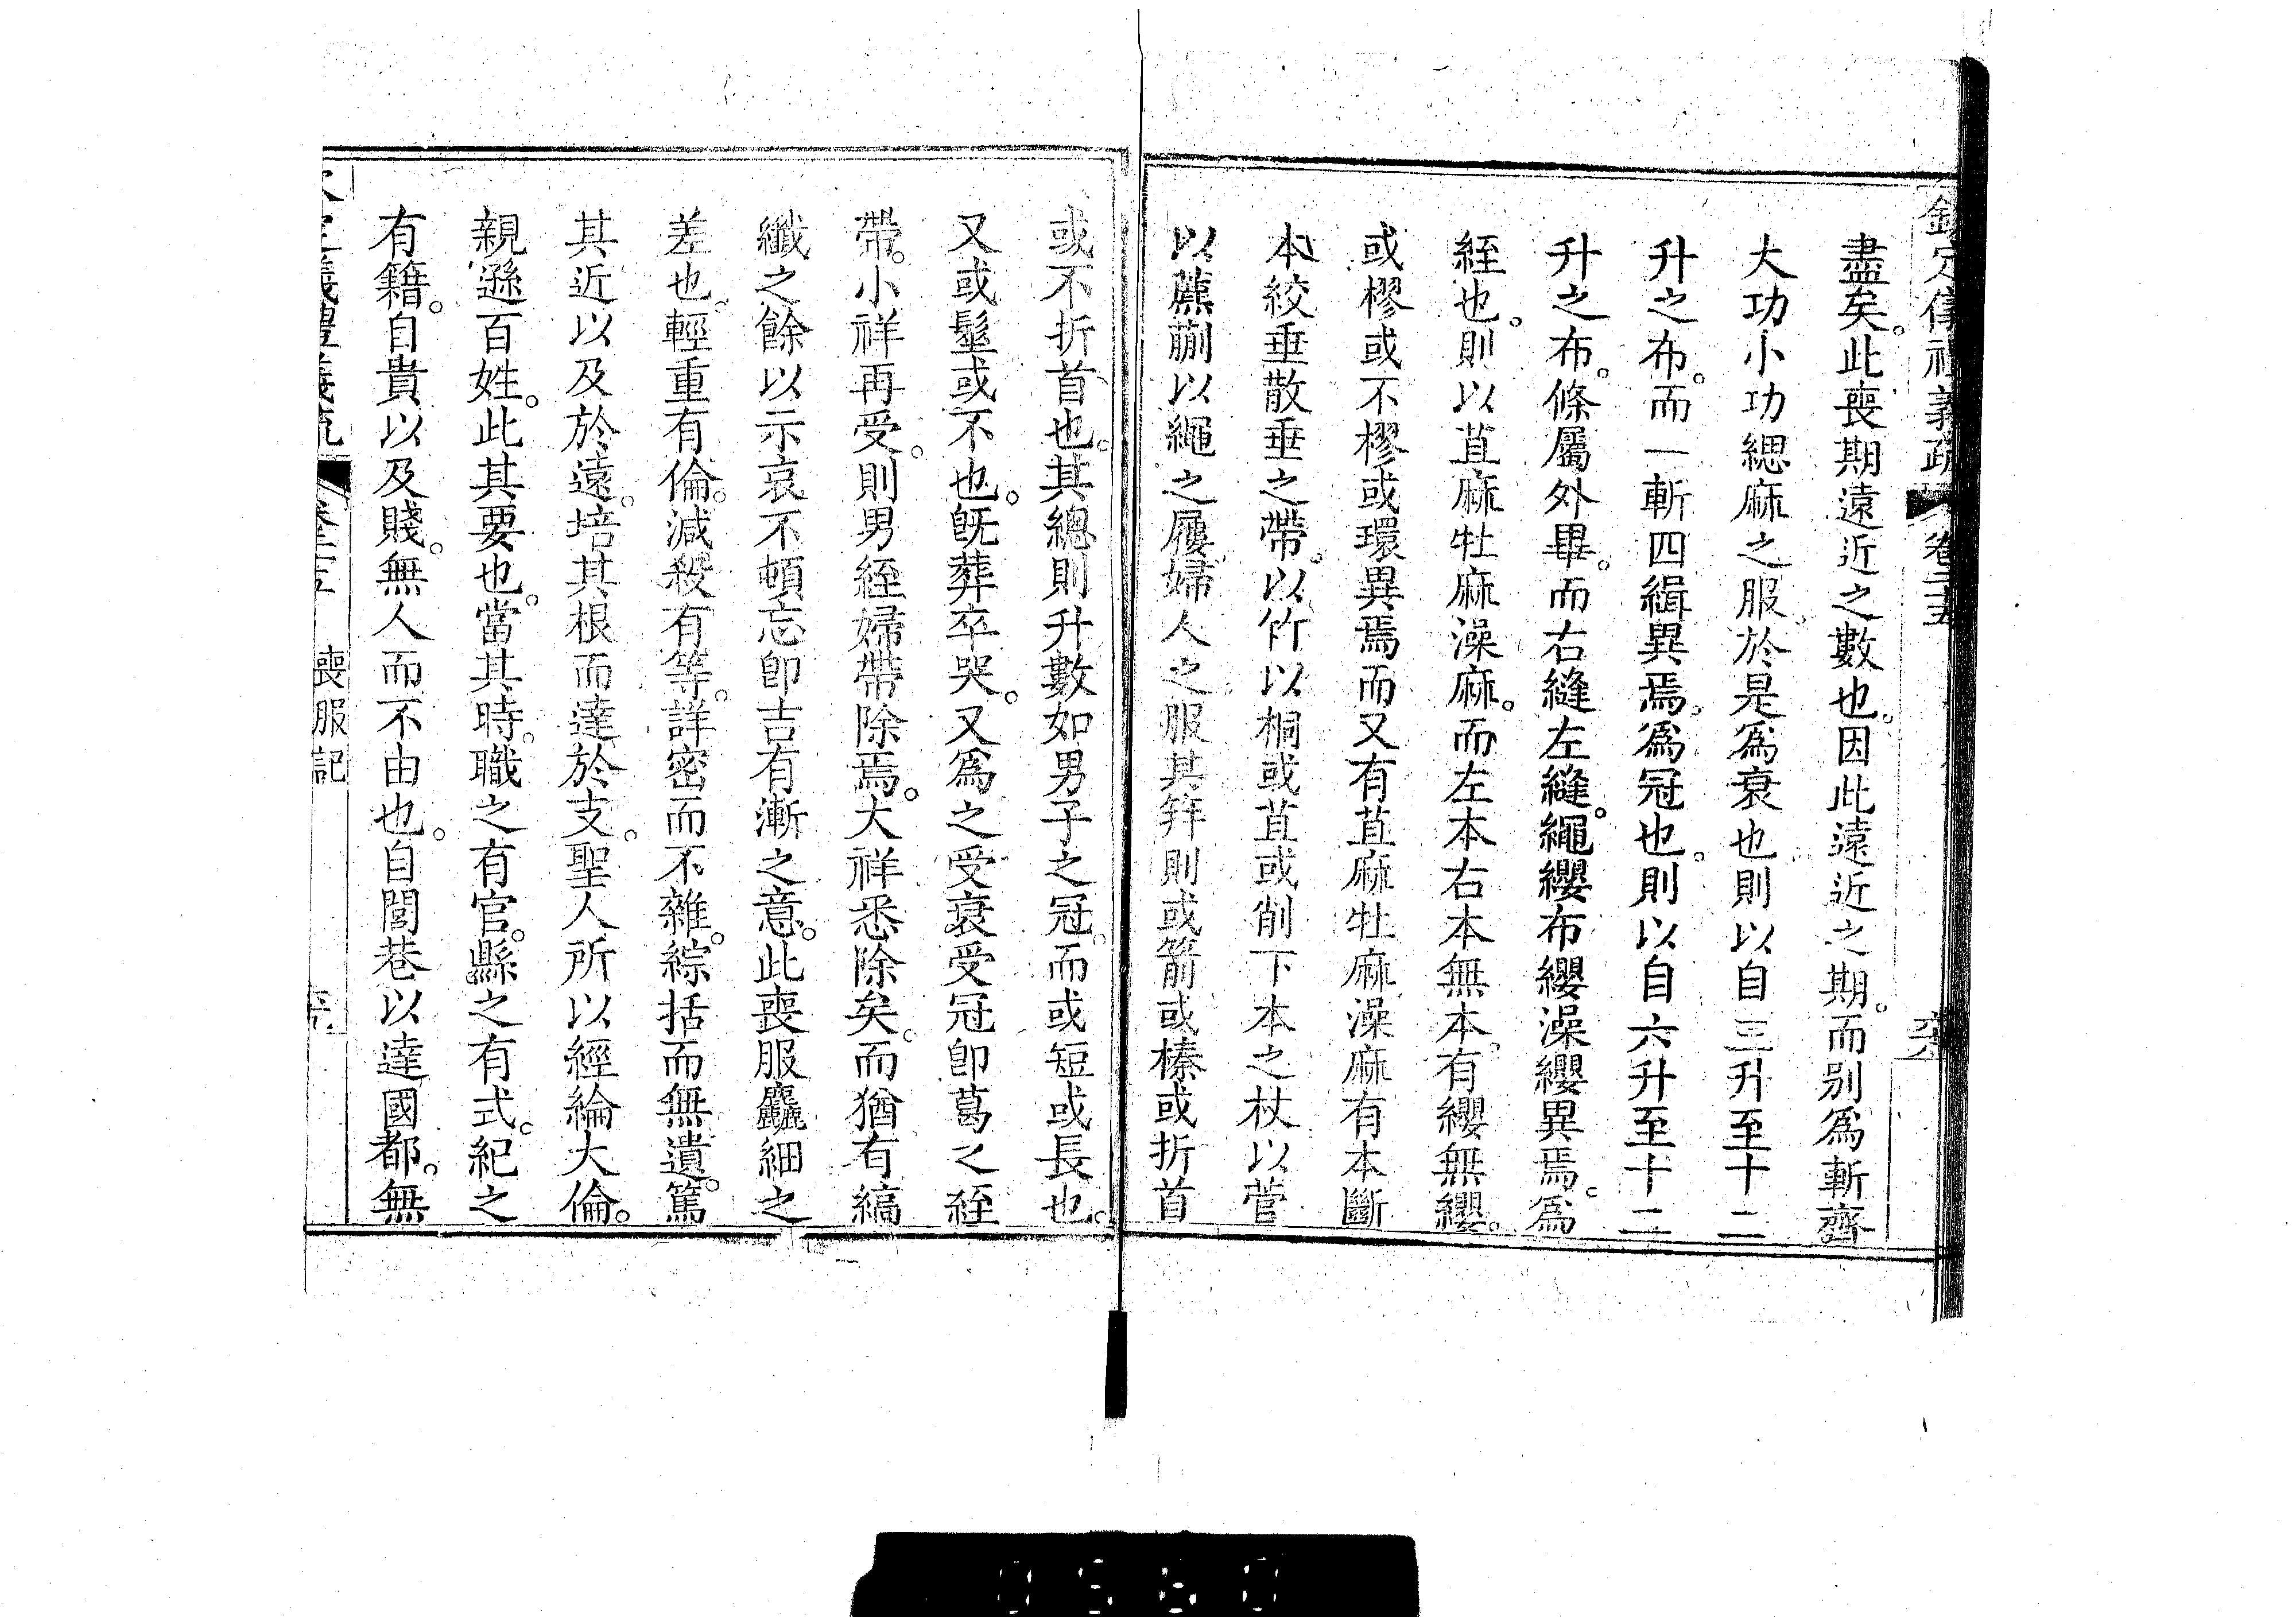 欽定儀禮義疏 卷二十五
盡矣。此喪期遠近之數也。因此遠近之期。而别爲斬齊
大功小功緦麻之服於是爲衰也則以自三升至十二
升之布。而一斬四緝異焉。爲冠也。則以自六升至十二
升之布。條屬外畢。而右縫左縫。繩纓布纓澡纓異焉。爲
絰也。則以苴麻牡麻澡麻。而左本右本無本。有纓無纓。
或樛或不樛或環異焉而又有苴麻牡麻澡麻有本斷
本絞垂散垂之帶。以竹以桐或苴或削下本之杖以菅
以藨蒯以繩之屨婦人之服其笄則或箭或榛或折首
或不折首也。其總則升數如男子之冠。而或短或長也。
又或髽或不也。旣葬卒哭。又爲之受衰受冠卽葛之絰
帶。小祥再受。則男絰婦帶除焉。大祥悉除矣。而猶有縞
纖之餘以示哀不頓忘卽吉有漸之意。此喪服麤細之
差也。輕重有倫。減殺有等。詳密而不雜。綜括而無遺。篤
其近以及於遠。培其根而達於支。聖人所以經綸大倫。
親遜百姓。此其要也。當其時。職之有官。縣之有式。紀之
有籍。自貴以及賤。無人而不由也。自閭巷以達國都。無
喪服記
0580